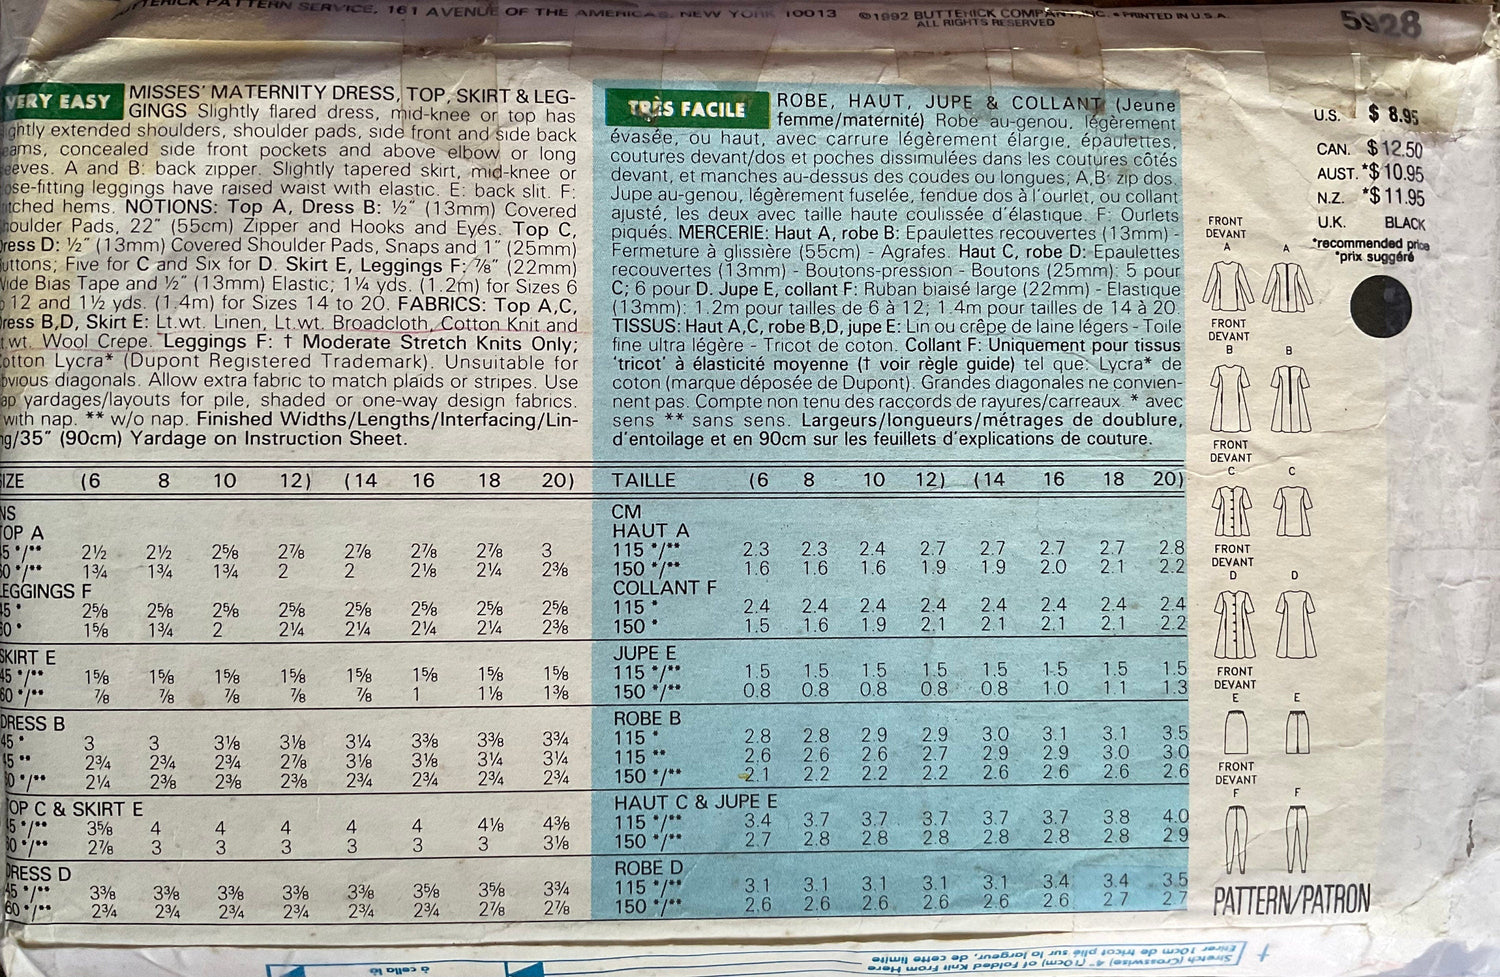 PATTERN SERVICE, 161 AVENUE OF THE AMERICAS, NEW YORK 10013 ©1992 BUTTERICK COMPANY, INC. • PRINTED IN U.S.A.
ALL RIGHTS RESERVED
5928
VERY EASY
MISSES' MATERNITY DRESS, TOP, SKIRT & LEG-
GINGS Slightly flared dress, mid-knee or top has
ghtly extended shoulders, shoulder pads, side front and side back
eams, concealed side front pockets and above elbow or long
eeves. A and B: back zipper. Slightly tapered skirt, mid-knee or
ose-fitting leggings have raised waist with elastic. E: back slit. F:
itched hems. NOTIONS: Top A, Dress B: ½" (13mm) Covered
houlder Pads, 22" (55cm) Zipper and Hooks and Eyes. Top C,
ress D: ½" (13mm) Covered Shoulder Pads, Snaps and 1" (25mm)
uttons; Five for C and Six for D. Skirt E, Leggings F: ⅞" (22mm)
Wide Bias Tape and ½" (13mm) Elastic; 1¼ yds. (1.2m) for Sizes 6
o 12 and 1½ yds. (1.4m) for Sizes 14 to 20. FABRICS: Top A,C,
ress B,D, Skirt E: Lt.wt. Linen, Lt.wt. Broadcloth, Cotton Knit and
t.wt. Wool Crepe. Leggings F: † Moderate Stretch Knits Only;
otton Lycra* (Dupont Registered Trademark). Unsuitable for
bvious diagonals. Allow extra fabric to match plaids or stripes. Use
ap yardages/layouts for pile, shaded or one-way design fabrics.
with nap. ** w/o nap. Finished Widths/Lengths/Interfacing/Lin-
ng/35" (90cm) Yardage on Instruction Sheet.
IZE (6 8 10 12) (14 16 18 20)
NS
TOP A
5 */** 2½ 2½ 2⅝ 2⅞ 2⅞ 2⅞ 2⅞ 3
0 */** 1¾ 1¾ 1¾ 2 2 2⅛ 2¼ 2⅜
LEGGINGS F
45 * 2⅝ 2⅝ 2⅝ 2⅝ 2⅝ 2⅝ 2⅝ 2⅝
60 * 1⅝ 1¾ 2 2¼ 2¼ 2¼ 2¼ 2⅜
SKIRT E
45 */** 1⅝ 1⅝ 1⅝ 1⅝ 1⅝ 1⅝ 1⅝ 1⅝
60 */** ⅞ ⅞ ⅞ ⅞ ⅞ 1 1⅛ 1⅜
DRESS B
45 * 3 3 3⅛ 3⅛ 3¼ 3⅜ 3⅜ 3¾
45 ** 2¾ 2¾ 2¾ 2⅞ 3⅛ 3⅛ 3¼ 3¼
60 */** 2¼ 2⅜ 2⅜ 2⅜ 2¾ 2¾ 2¾ 2¾
TOP C & SKIRT E
45 */** 3⅝ 4 4 4 4 4 4⅛ 4⅜
60 */** 2⅞ 3 3 3 3 3 3 3⅛
DRESS D
45 */** 3⅜ 3⅜ 3⅜ 3⅜ 3⅜ 3⅝ 3⅝ 3¾
60 */** 2¾ 2¾ 2¾ 2¾ 2¾ 2¾ 2⅞ 2⅞
TRÈS FACILE
ROBE, HAUT, JUPE & COLLANT (Jeune
femme/maternité) Robe au-genou, légèrement
évasée, ou haut, avec carrure légèrement élargie, épaulettes,
coutures devant/dos et poches dissimulées dans les coutures côtés
devant, et manches au-dessus des coudes ou longues; A,B: zip dos.
Jupe au-genou, légèrement fuselée, fendue dos à l'ourlet, ou collant
ajusté, les deux avec taille haute coulissée d'élastique. F: Ourlets
piqués. MERCERIE: Haut A, robe B: Epaulettes recouvertes (13mm) -
Fermeture à glissière (55cm) - Agrafes. Haut C, robe D: Epaulettes
recouvertes (13mm) - Boutons-pression - Boutons (25mm): 5 pour
C; 6 pour D. Jupe E, collant F: Ruban biaisé large (22mm) - Elastique
(13mm): 1.2m pour tailles de 6 à 12; 1.4m pour tailles de 14 à 20.
TISSUS: Haut A,C, robe B,D, jupe E: Lin ou crêpe de laine légers - Toile
fine ultra légère - Tricot de coton. Collant F: Uniquement pour tissus
'tricot' à élasticité moyenne († voir règle guide) tel que: Lycra* de
coton (marque déposée de Dupont). Grandes diagonales ne convien-
nent pas. Compte non tenu des raccords de rayures/carreaux. * avec
sens ** sans sens. Largeurs/longueurs/métrages de doublure,
d'entoilage et en 90cm sur les feuillets d'explications de couture.
TAILLE (6 8 10 12) (14 16 18 20)
CM
HAUT A
115 */** 2.3 2.3 2.4 2.7 2.7 2.7 2.7 2.8
150 */** 1.6 1.6 1.6 1.9 1.9 2.0 2.1 2.2
COLLANT F
115 * 2.4 2.4 2.4 2.4 2.4 2.4 2.4 2.4
150 * 1.5 1.6 1.9 2.1 2.1 2.1 2.1 2.2
JUPE E
115 */** 1.5 1.5 1.5 1.5 1.5 1.5 1.5 1.5
150 */** 0.8 0.8 0.8 0.8 0.8 1.0 1.1 1.3
ROBE B
115 * 2.8 2.8 2.9 2.9 3.0 3.1 3.1 3.5
115 ** 2.6 2.6 2.6 2.7 2.9 2.9 3.0 3.0
150 */** 2.1 2.2 2.2 2.2 2.6 2.6 2.6 2.6
HAUT C & JUPE E
115 */** 3.4 3.7 3.7 3.7 3.7 3.7 3.8 4.0
150 */** 2.7 2.8 2.8 2.8 2.8 2.8 2.8 2.9
ROBE D
115 */** 3.1 3.1 3.1 3.1 3.1 3.4 3.4 3.5
150 */** 2.6 2.6 2.6 2.6 2.6 2.6 2.7 2.7
U.S. $ 8.95
CAN. $ 12.50
AUST. *$ 10.95
N.Z. *$ 11.95
U.K. BLACK
*recommended price
*prix suggéré
FRONT
DEVANT
A A
FRONT
DEVANT
B B
FRONT
DEVANT
C C
FRONT
DEVANT
D D
FRONT
DEVANT
E E
FRONT
DEVANT
F F
PATTERN/PATRON
Stretch (Crosswise) 4" (10cm) of Folded Knit From Here
Etirer 10cm de tricot plié sur la largeur, de cette limite
à cella là